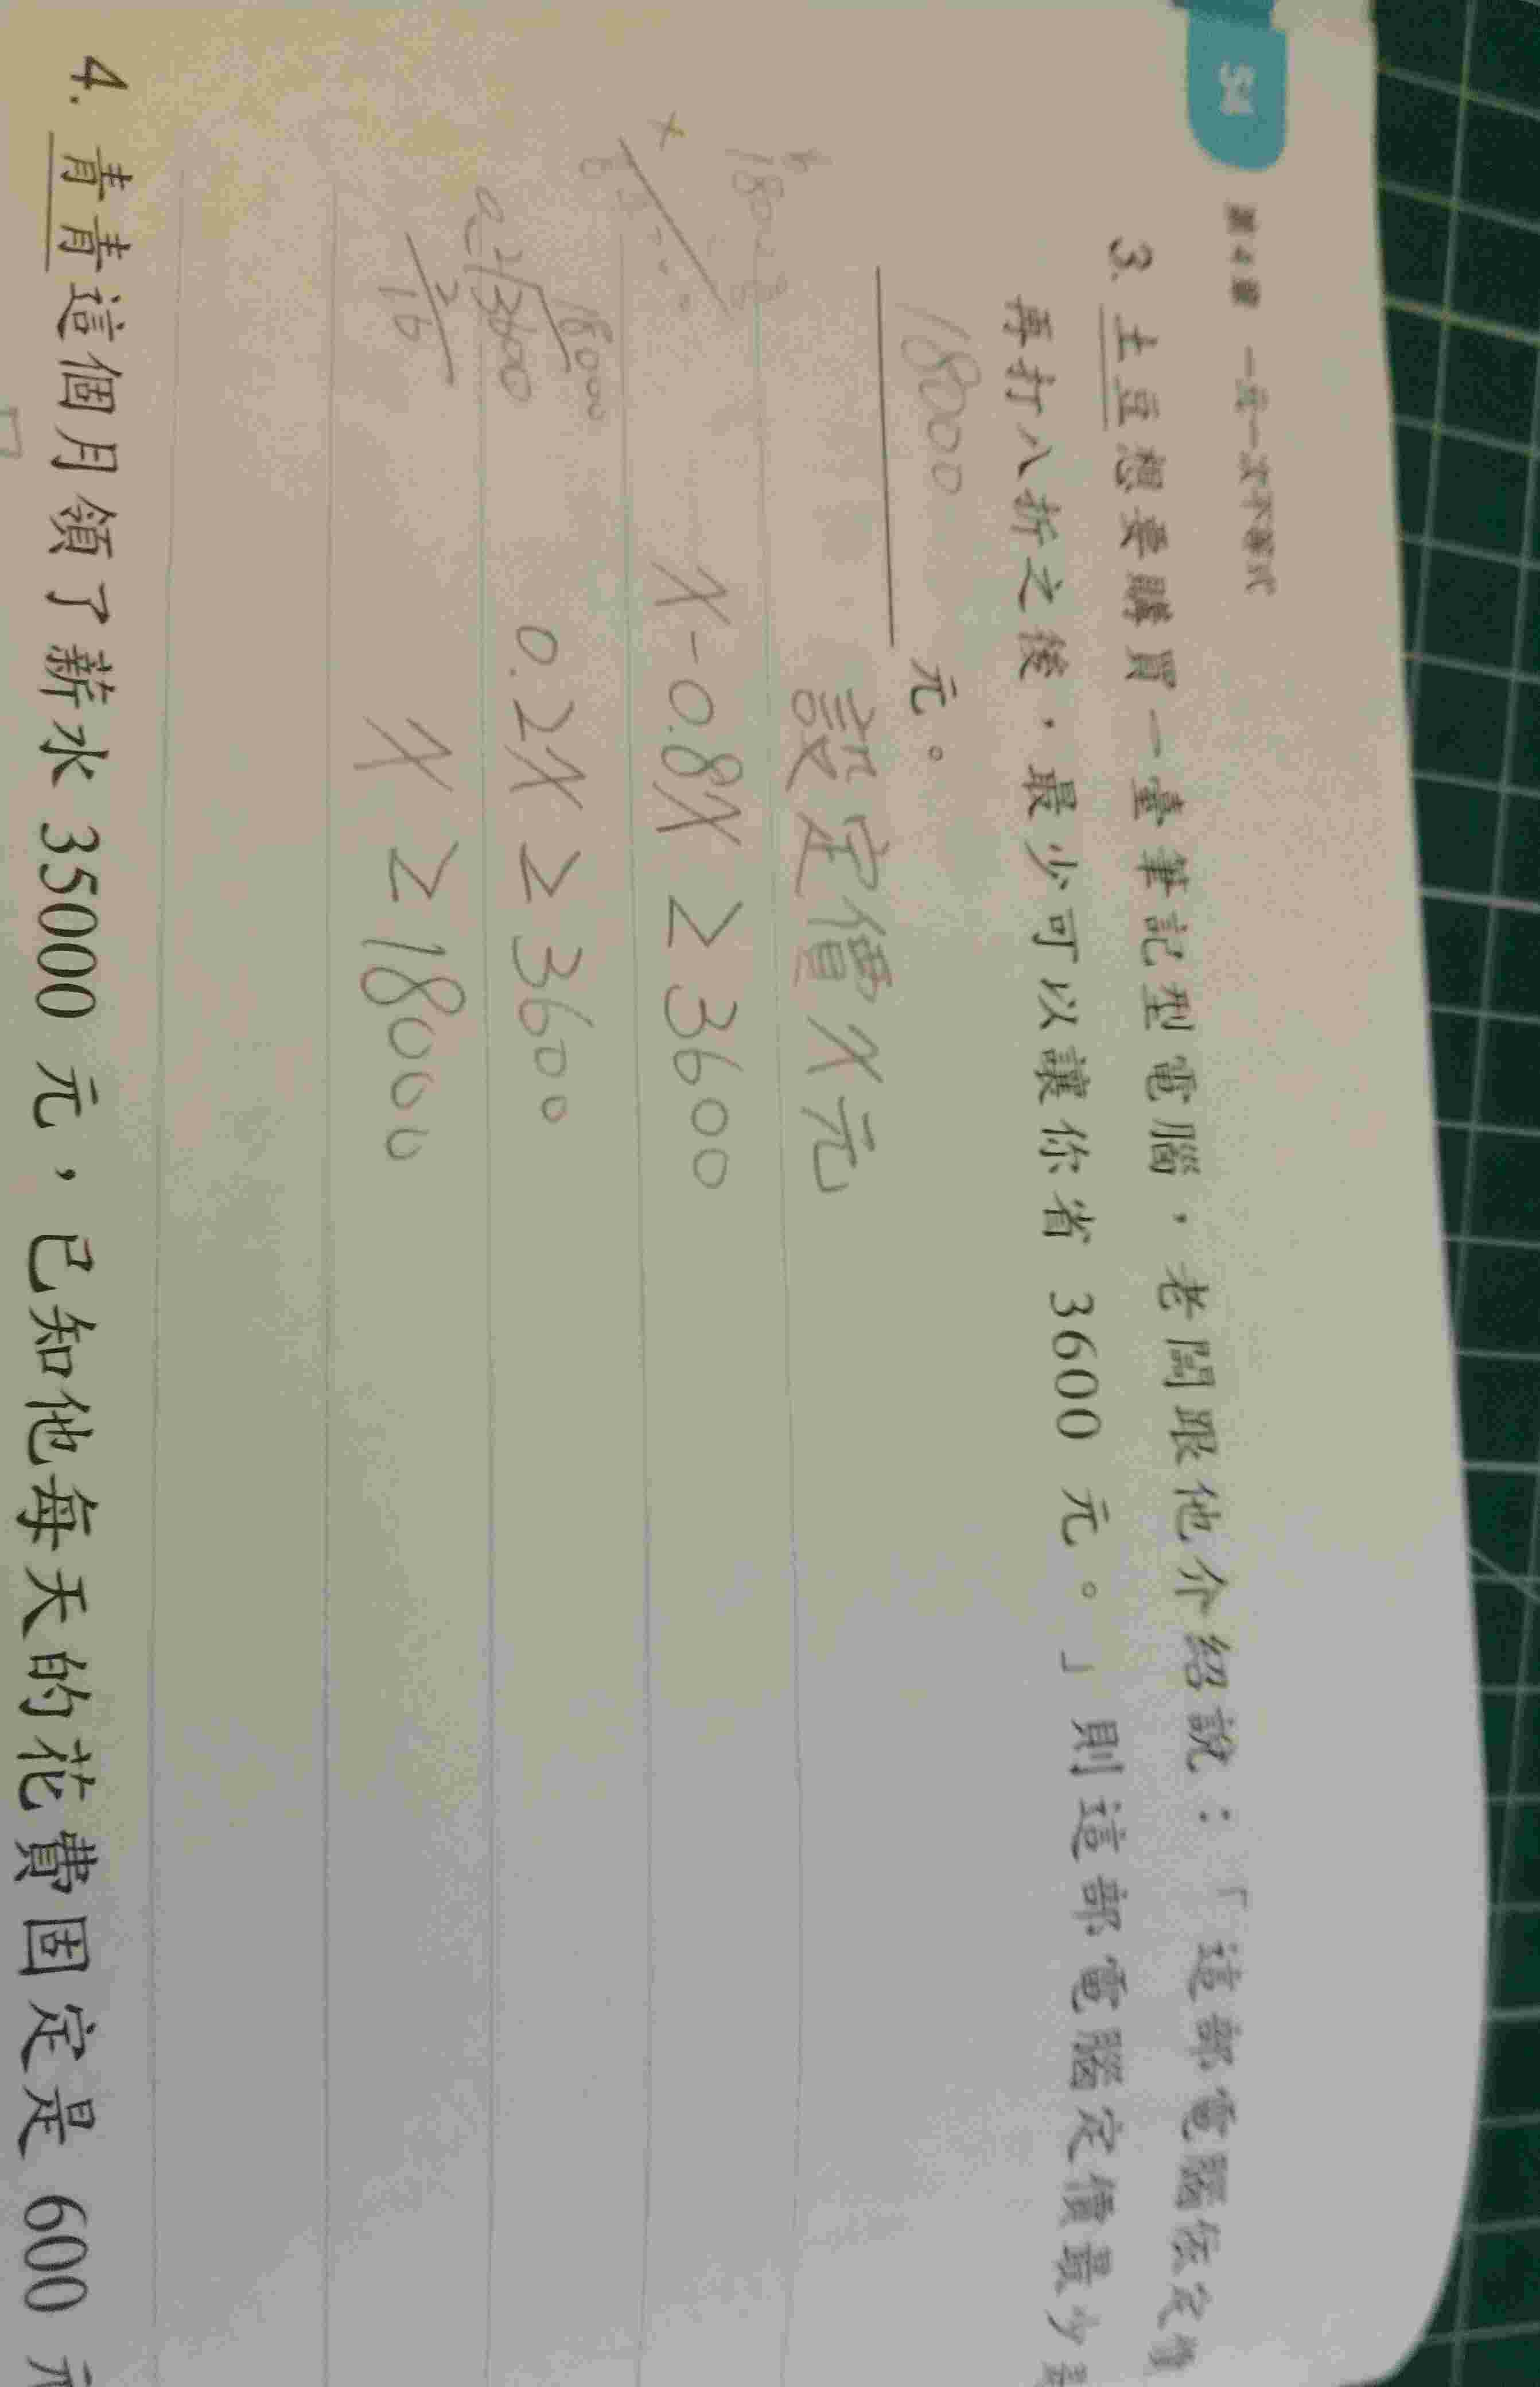 54
第4章 一元一次不等式
3. 土豆想要購買一臺筆記型電腦，老闆跟他介紹說：「這部電腦依定價
再打八折之後，最少可以讓你省 3600 元。」則這部電腦定價最少是
18000 元。
設定價X元
X-0.8X ≥ 3600
0.2X ≥ 3600
X ≥ 18000
18000
0.2)3600
2
16
4. 青青這個月領了薪水 35000 元，已知他每天的花費固定是 600 元